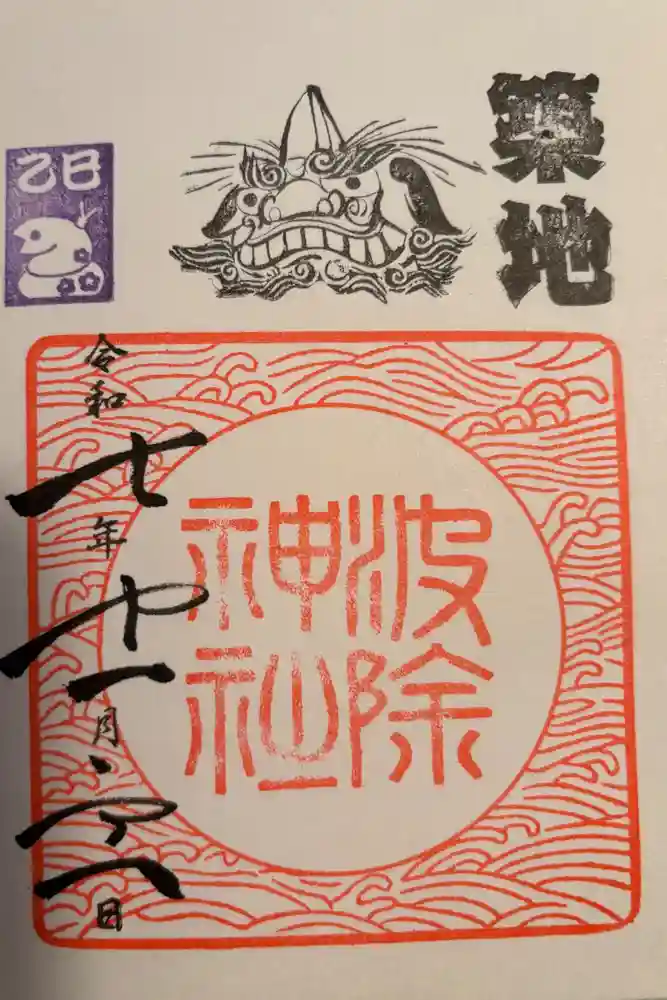 築地
乙巳
波除
神社
令和七年十一月 日